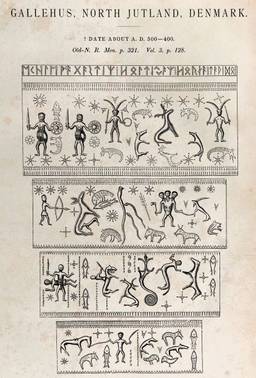 GALLEHUS, NORTH JUTLAND, DENMARK.
? DATE ABOUT A. D. 300—400.
Old-N. R. Mon. p. 321. Vol. 3, p. 128.